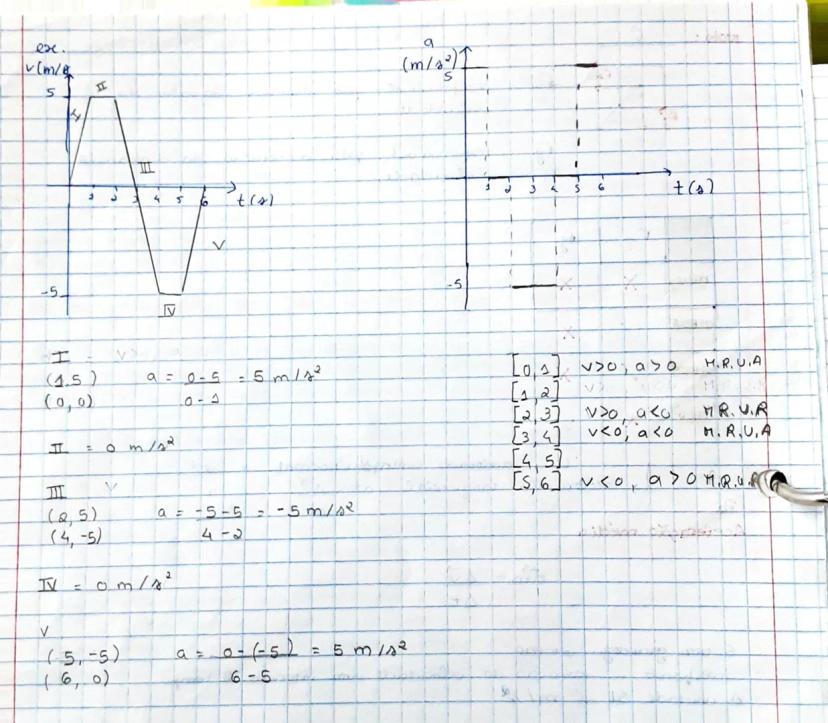 ex.
v(m/s
5
I
II
III
1 2 3 4 5 6 t(s)
V
-5
IV
a
(m/s²)
5
1 2 3 4 5 6 t(s)
-5
I =
(1,5) a = 0-5 = 5 m/s²
(0,0) 0-1
II = 0 m/s²
III
(2,5) a = -5-5 = -5 m/s²
(4,-5) 4-2
IV = 0 m/s²
V
(5,-5) a = 0-(-5) = 5 m/s²
(6, 0) 6-5
[0,1] v>0, a>0 M.R.U.A
[1,2]
[2,3] v>0, a<0 M.R.U.R
[3,4] v<0, a<0 M.R.U.A
[4,5]
[5,6] v<0, a>0 M.R.U.R